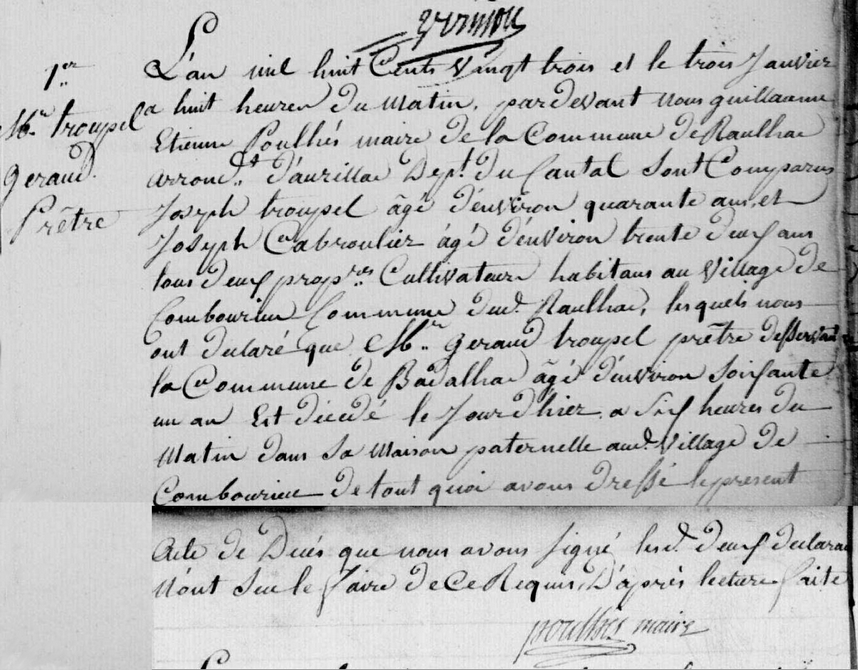 1er
Mr. troupel
Geraud.
Prêtre
L'an mil huit Cents Vingt trois et le trois Janvier
a huit heures du Matin, pardevant nous guillaume
Etienne Poulhés maire de la Commune de Raulhac
arrond.t d'aurillac Dep.t du Cantal Sont Comparus
Joseph troupel âgé d'environ quarante ans, et
Joseph Cabroulier âgé d'environ trente deux ans
tous deux prop.res Cultivateurs habitans au Village de
Combourieu Commune dud. Raulhac, lesquels nous
ont declaré que Mr. Geraud troupel prêtre desservant
la Commune de Badalhac âgé d'environ Soixante
un an Est décédé le Jour d'hier a Six heures du
Matin dans Sa Maison paternelle aud. Village de
Combourieu De tout quoi avons Dressé le present
Acte de Decés que nous avons Signé lesd. deux declarans
N'ont Sçu le faire de Ce Requis, D'après lecture faite
poulhés maire